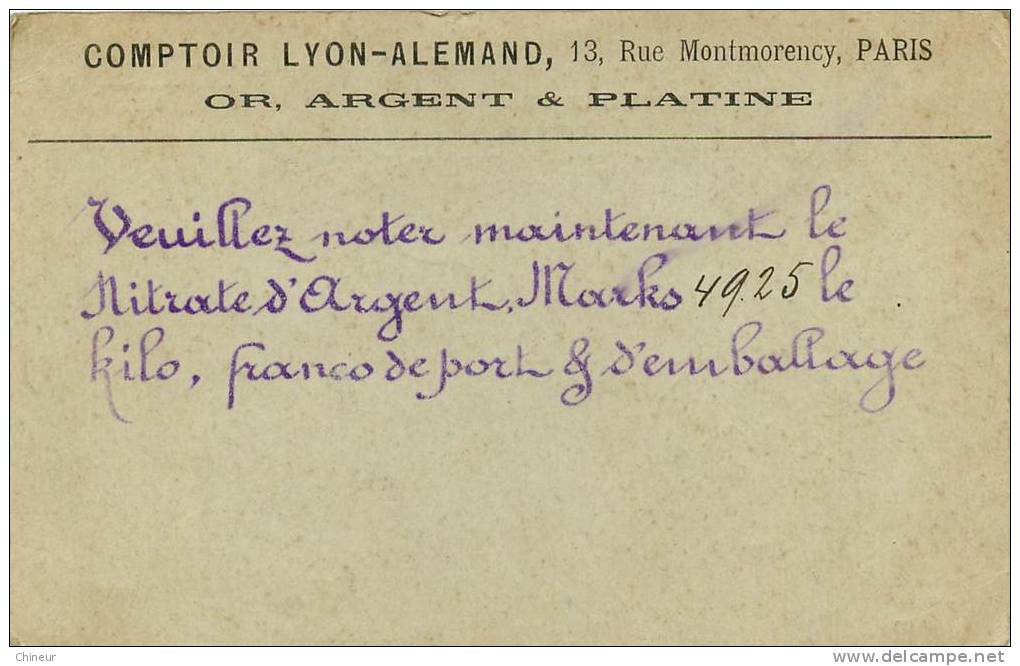 COMPTOIR LYON-ALEMAND, 13, Rue Montmorency, PARIS
OR, ARGENT & PLATINE
Veuillez noter maintenant le
Nitrate d'Argent, Marks 49.25 le
kilo, franco de port & d'emballage
Chineur
www.delcampe.net